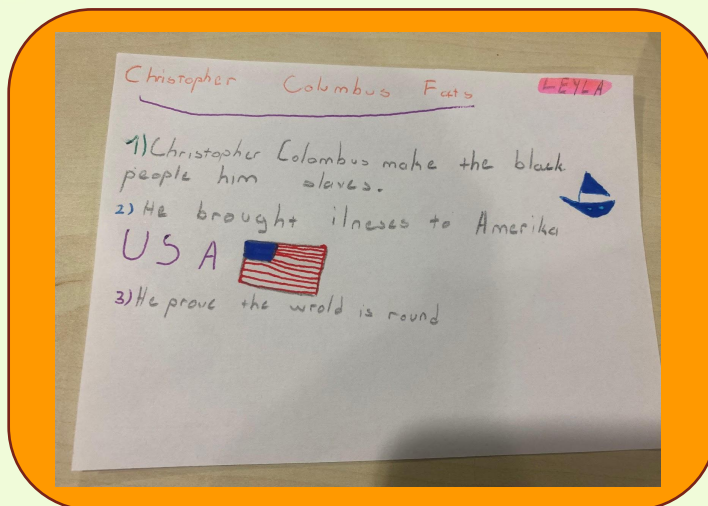 Christopher Columbus Facts
LEYLA
1) Christopher Colombus make the black
people him slaves.
2) He brought ilneses to Amerika
USA
3) He prove the wrold is round